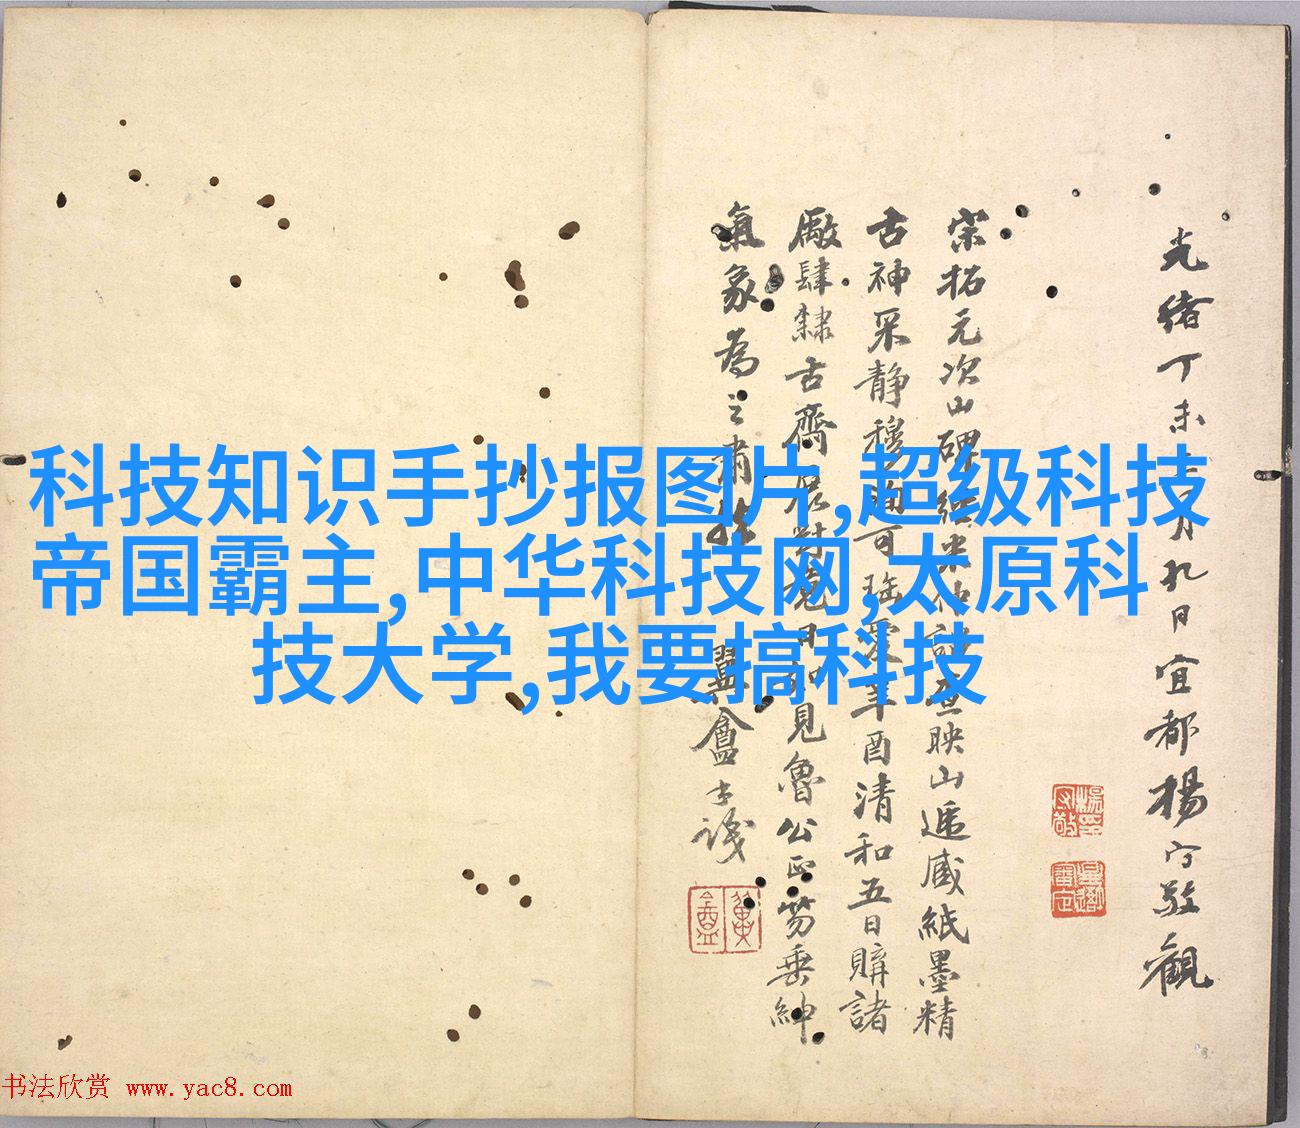 光绪丁未三月九日宜都楊守敬觀
宗拓元次山碑
映山遞臧紙墨精
古神采静穆
可
爱辛酉清和五日購諸
廠肆隸古齋
見魯公正笏垂紳
氣象為之肅然
翼盦士識
科技知识手抄报图片,超级科技
帝国霸主,中华科技网,太原科
技大学,我要搞科技
书法欣赏 www.yac8.com